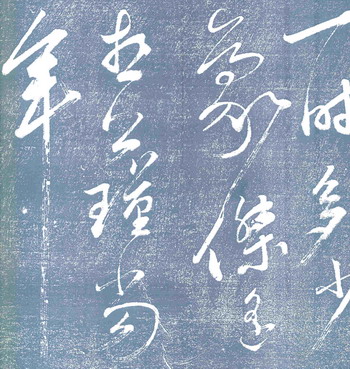 一时多少
豪傑遥
想公瑾當
年